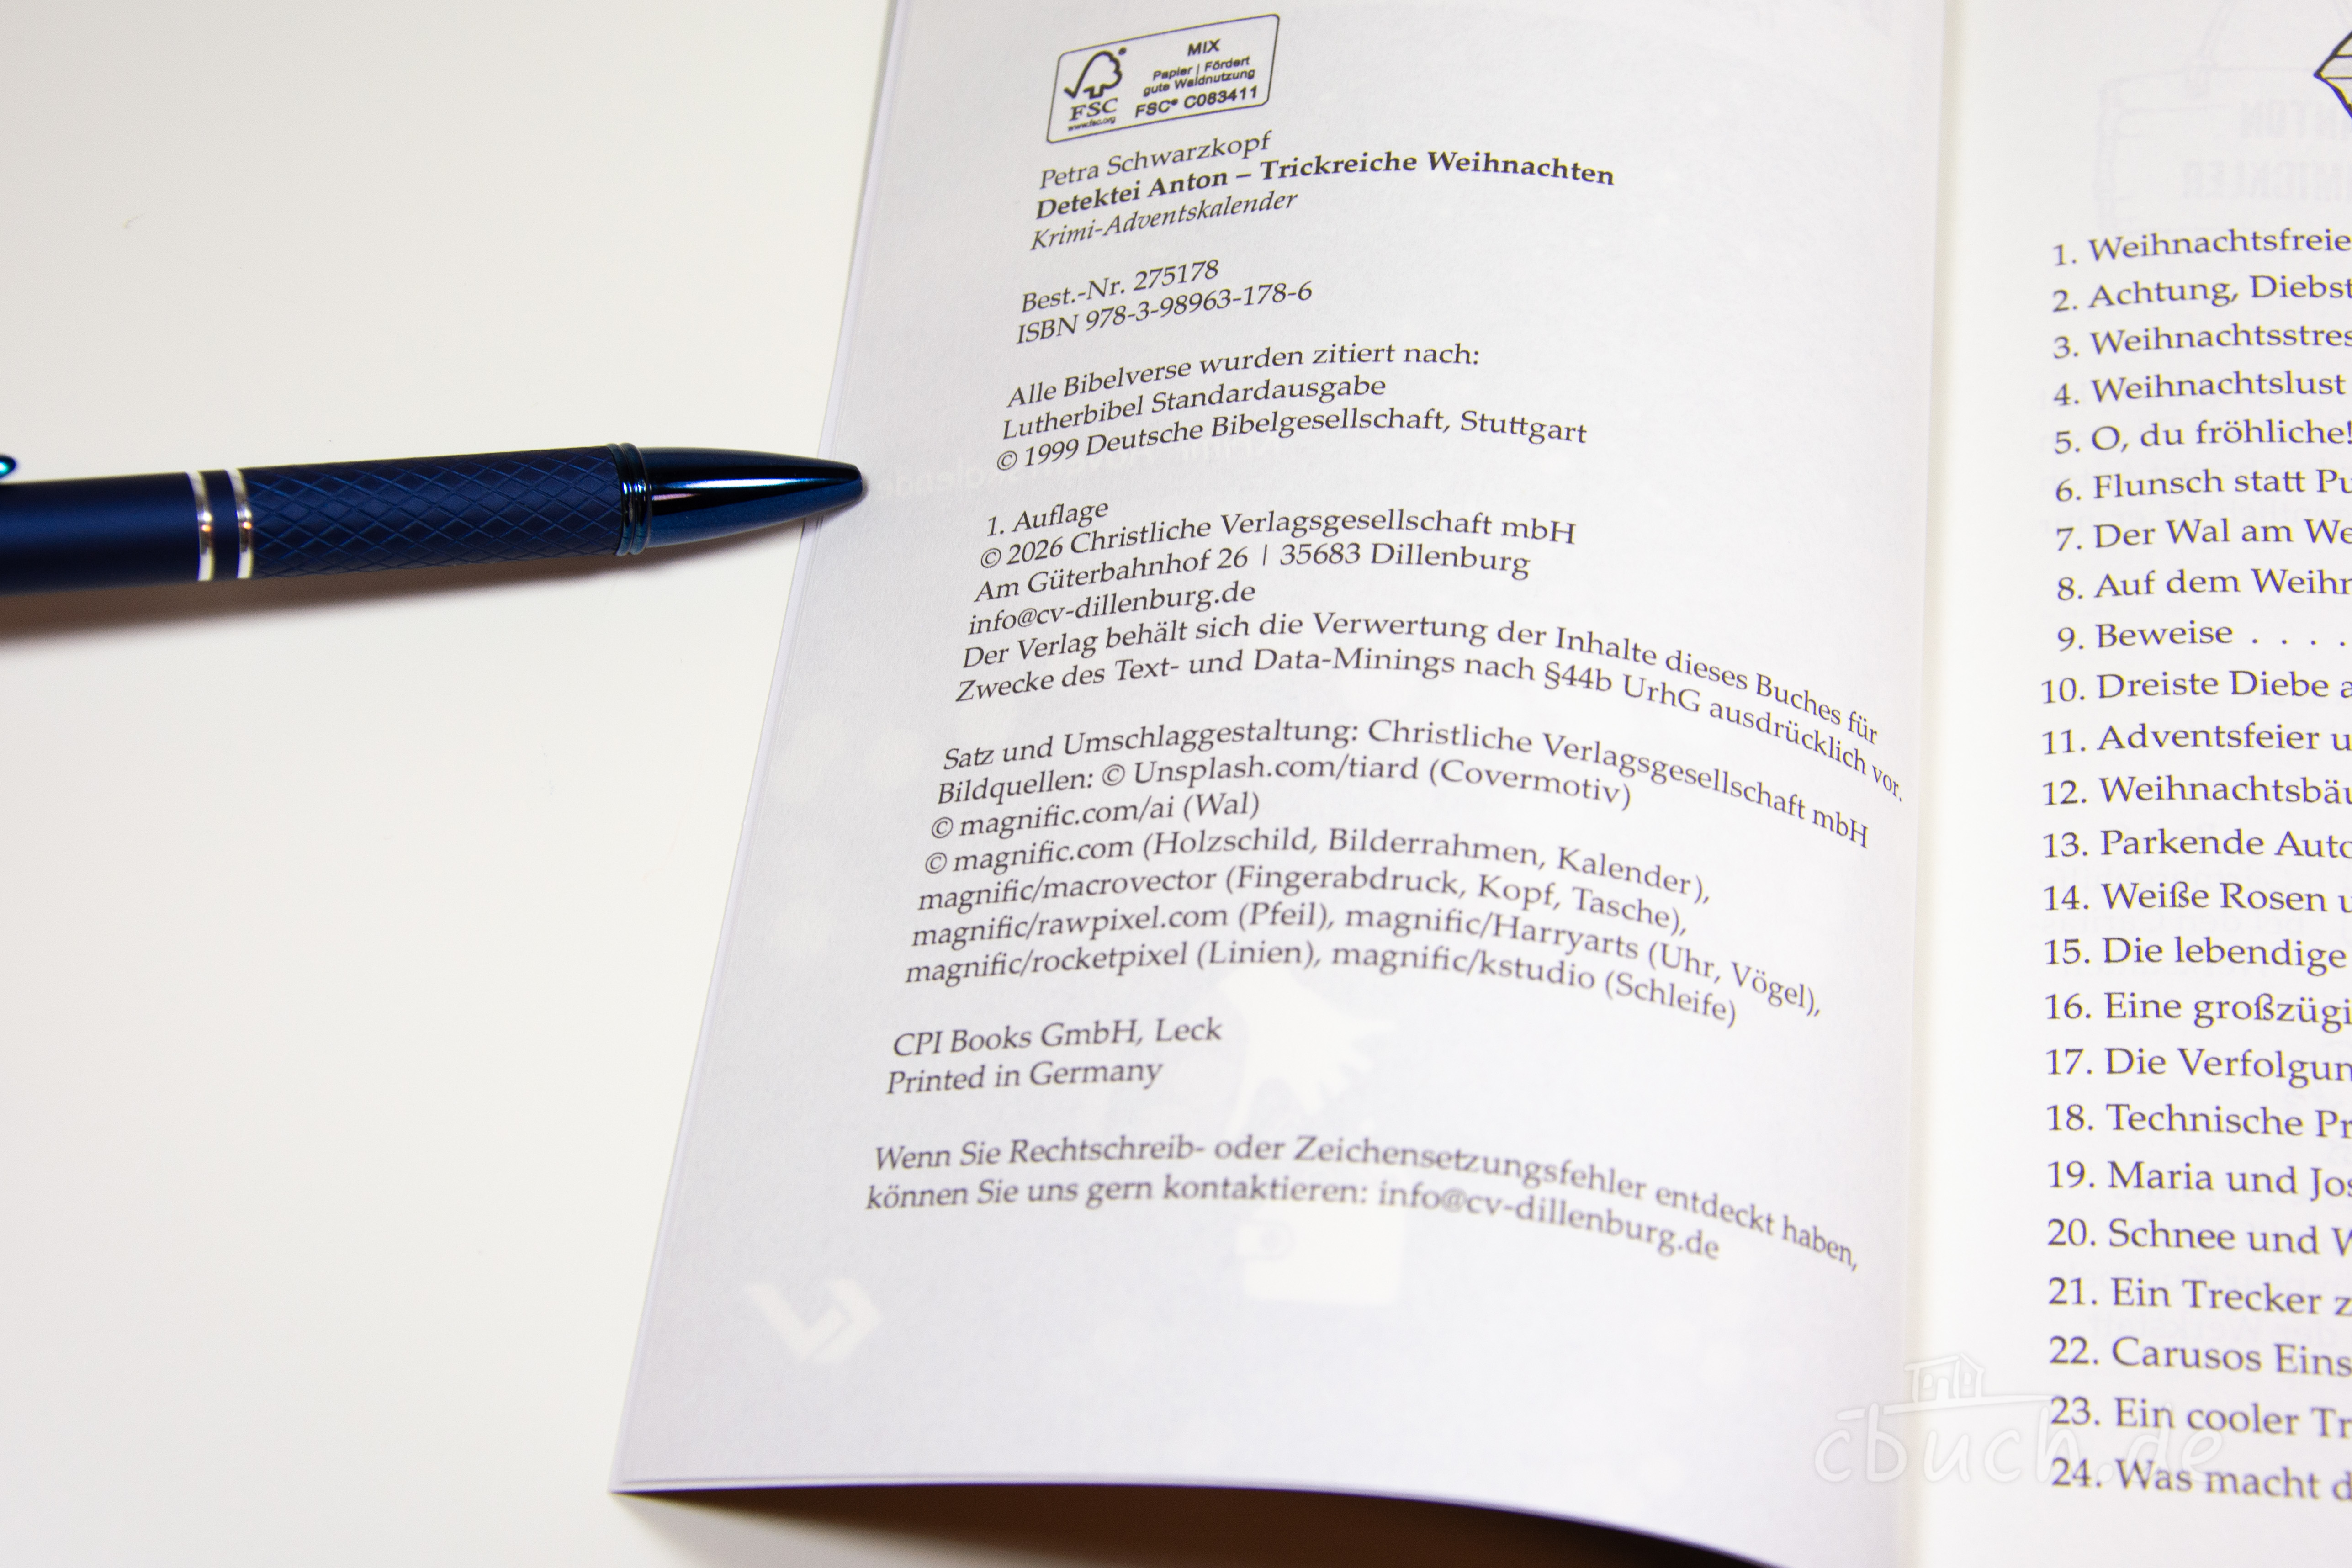 MIX
Papier | Fördert
gute Waldnutzung
FSC® C083411
FSC
www.fsc.org
Petra Schwarzkopf
Detektei Anton – Trickreiche Weihnachten
Krimi-Adventskalender
Best.-Nr. 275178
ISBN 978-3-98963-178-6
Alle Bibelverse wurden zitiert nach:
Lutherbibel Standardausgabe
© 1999 Deutsche Bibelgesellschaft, Stuttgart
1. Auflage
© 2026 Christliche Verlagsgesellschaft mbH
Am Güterbahnhof 26 | 35683 Dillenburg
info@cv-dillenburg.de
Der Verlag behält sich die Verwertung der Inhalte dieses Buches für
Zwecke des Text- und Data-Minings nach §44b UrhG ausdrücklich vor.
Satz und Umschlaggestaltung: Christliche Verlagsgesellschaft mbH
Bildquellen: © Unsplash.com/tiard (Covermotiv)
© magnific.com/ai (Wal)
© magnific.com (Holzschild, Bilderrahmen, Kalender),
magnific/macrovector (Fingerabdruck, Kopf, Tasche),
magnific/rawpixel.com (Pfeil), magnific/Harryarts (Uhr, Vögel),
magnific/rocketpixel (Linien), magnific/kstudio (Schleife)
CPI Books GmbH, Leck
Printed in Germany
Wenn Sie Rechtschreib- oder Zeichensetzungsfehler entdeckt haben,
können Sie uns gern kontaktieren: info@cv-dillenburg.de
1. Weihnachtsfreie
2. Achtung, Diebst
3. Weihnachtsstres
4. Weihnachtslust
5. O, du fröhliche!
6. Flunsch statt Pu
7. Der Wal am We
8. Auf dem Weihn
9. Beweise . . . .
10. Dreiste Diebe a
11. Adventsfeier u
12. Weihnachtsbäu
13. Parkende Auto
14. Weiße Rosen u
15. Die lebendige
16. Eine großzügi
17. Die Verfolgun
18. Technische Pr
19. Maria und Jos
20. Schnee und W
21. Ein Trecker z
22. Carusos Eins
23. Ein cooler Tr
24. Was macht d
cbuch.de